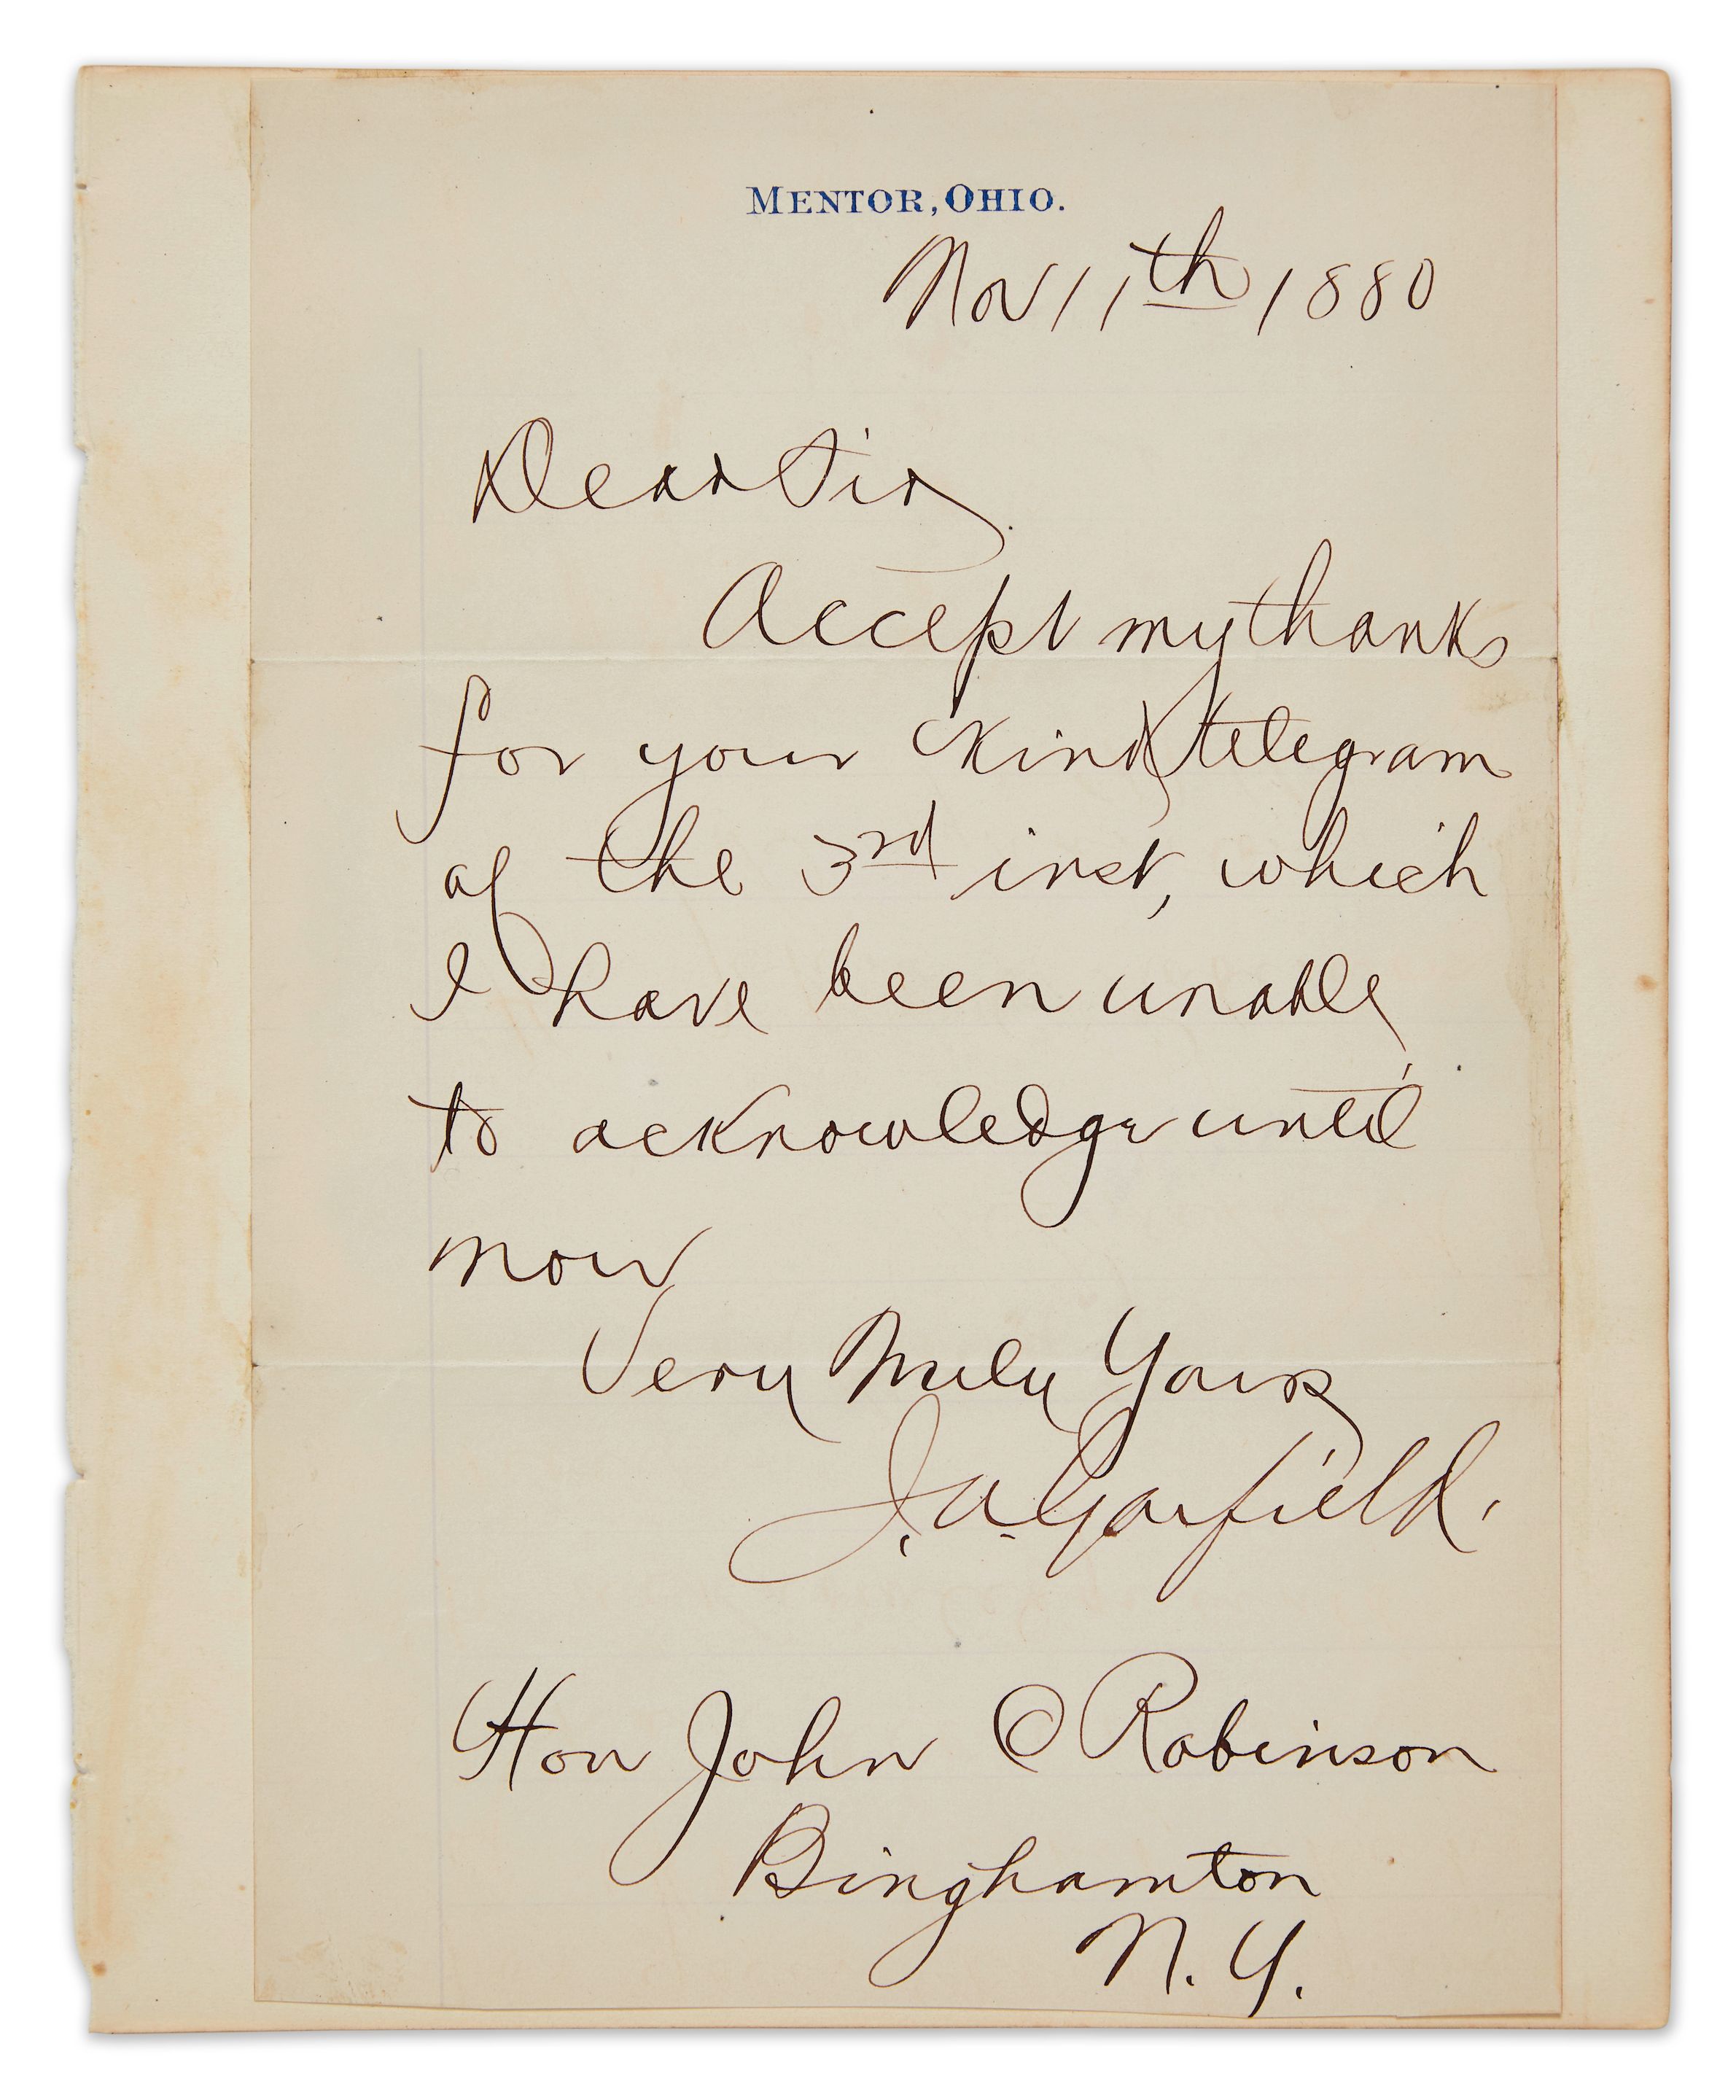 MENTOR, OHIO.
Nov 11th 1880
Dear Sir
Accept my thanks
for your kind telegram
of the 3rd inst, which
I have been unable
to acknowledge until
now
Very Truly Yours
J. A. Garfield.
Hon John C Robinson
Binghamton
N. Y.